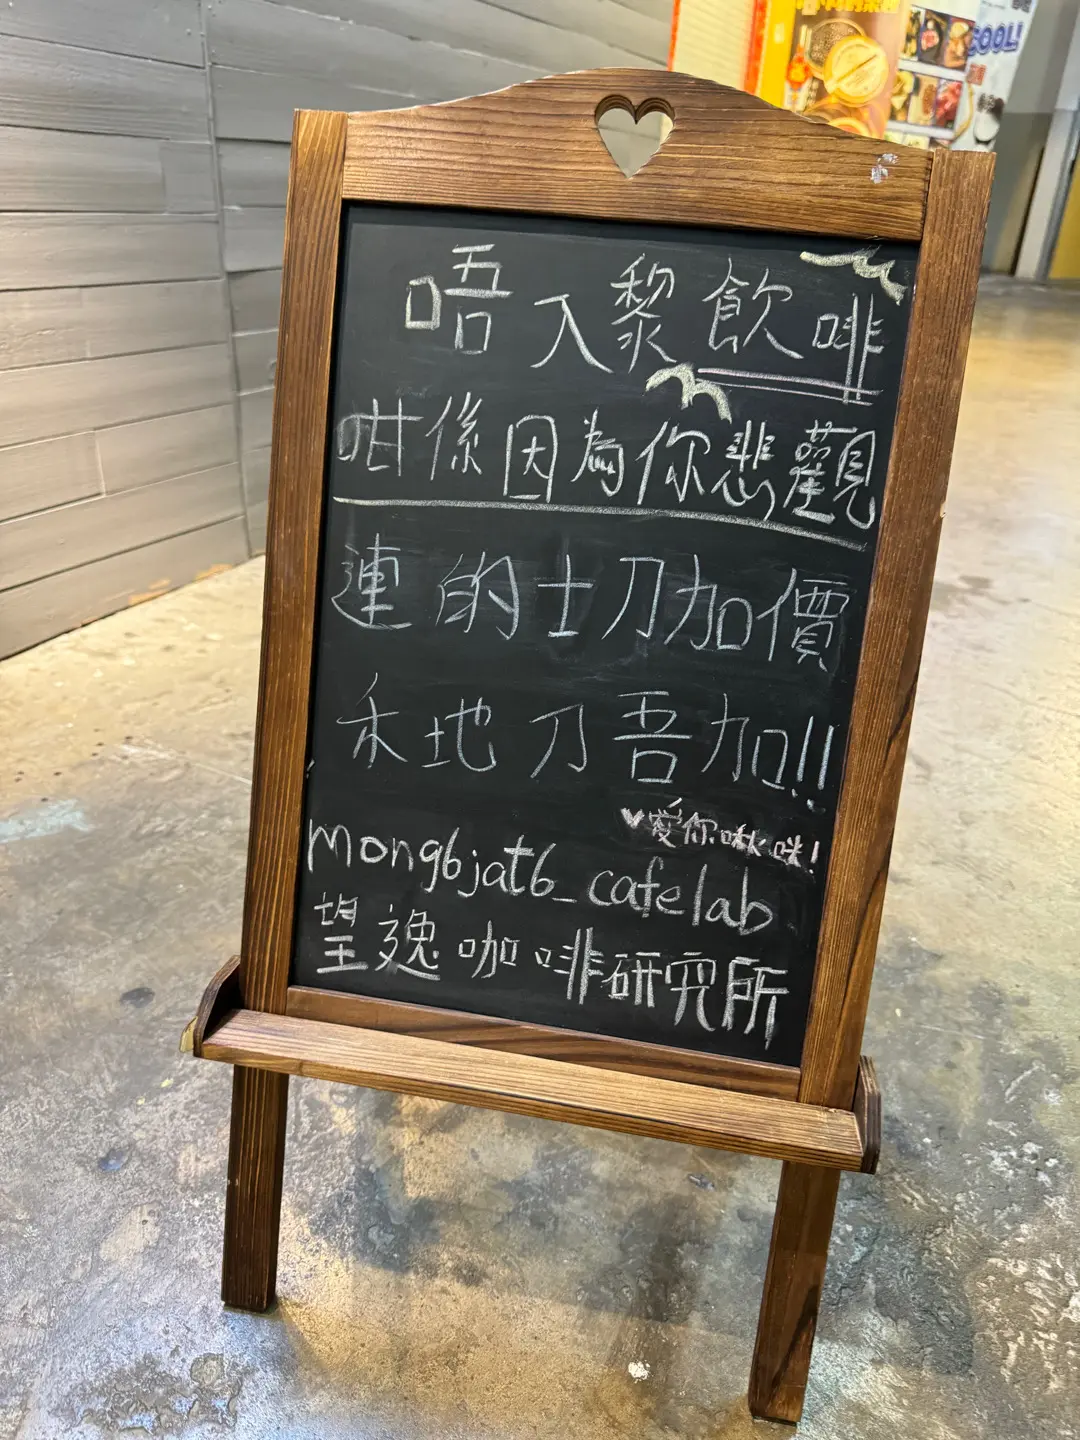 唔入黎飲啡
咁係因為你悲觀
連的士刀加價
禾地刀吾加!!
♥愛你啾咪!
mong6jat6_cafelab
望逸咖啡研究所
COOL!